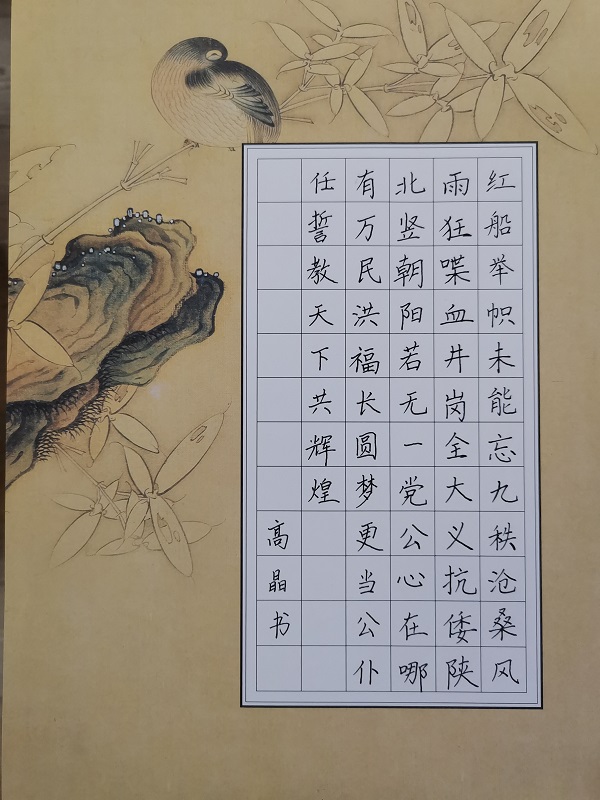 红船举帜未能忘九秩沧桑风
雨狂喋血井岗全大义抗倭陕
北竖朝阳若无一党公心在哪
有万民洪福长圆梦更当公仆
任誓教天下共辉煌
高晶书